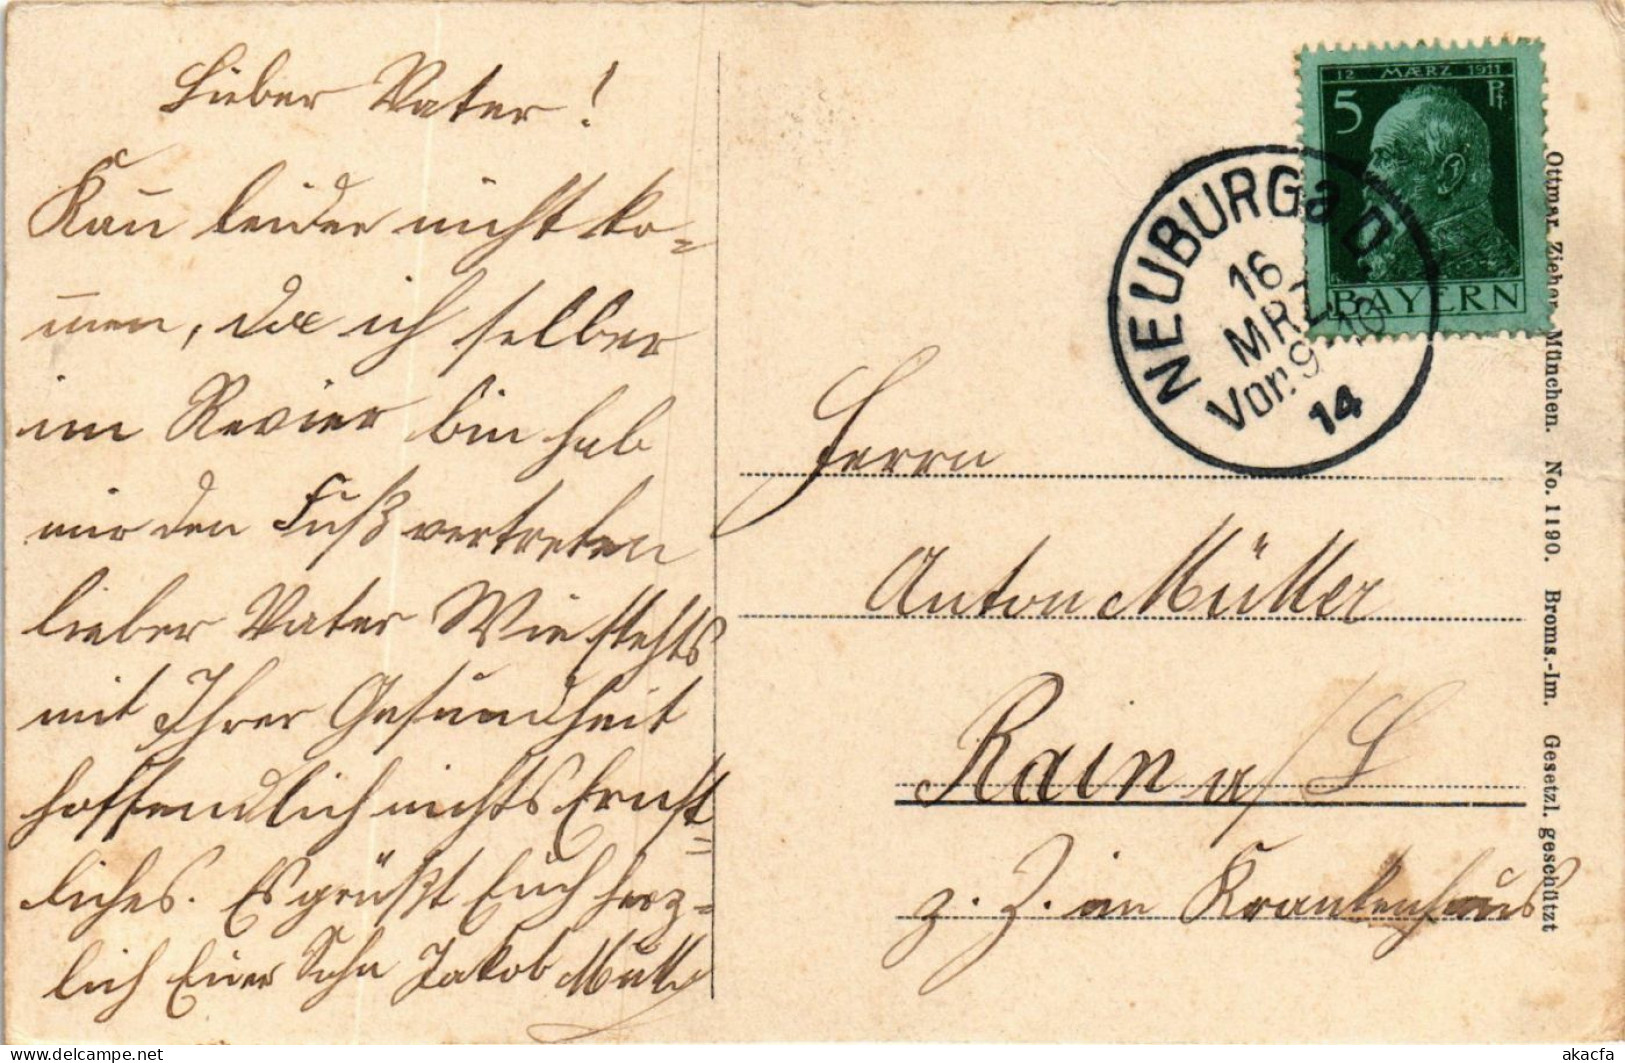 Lieber Vater!
Kan̄ leider nicht ko=
m̄en, da ich selber
im Revier bin hab
mir den Fuß vertreten
lieber Vater Wie stehts
mit Ihrer Gesundheit
hoffendlich nichts Ernst=
liches. Es grüßt Euch herz=
lich Euer Sohn Jakob Müller
12 MÆRZ 1911
5 Pf
BAYERN
NEUBURG a D.
16
MRZ
Vor. 9-10
14
Herrn
Anton Müller
Rain a/L
z. Z. im Krankenhaus
Ottmar Zieher, München. No. 1190. Broms.-Im. Gesetzl. geschützt
delcampe.net
akacfa